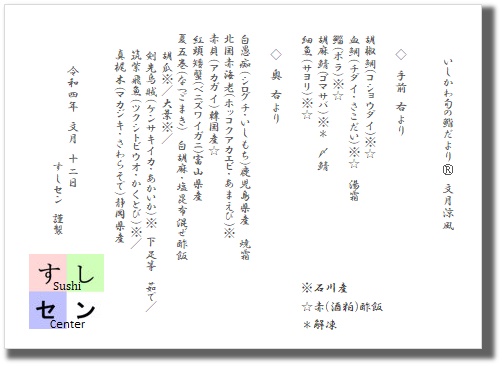 いしかわ旬の鮨だより® 文月涼風
◇ 手前 右より
胡椒鯛(コショウダイ)※☆
血鯛(チダイ・さこだい)※☆ 湯霜
鯔(ボラ)※☆
胡麻鯖(ゴマサバ)※＊ 〆鯖
細魚(サヨリ)※☆
◇ 奥 右より
白愚痴(シログチ・いしもち)鹿児島県産 焼霜
北国赤海老(ホッコクアカエビ・あまえび)※
赤貝(アカガイ)韓国産☆
紅頭矮蟹(ベニズワイガニ)富山県産
夏五巻(なつごまき) 白胡麻・塩昆布混ぜ酢飯
胡瓜※／大葉※／
剣先烏賊(ケンサキイカ・あかいか)※ 下足等 茹で／
筑紫飛魚(ツクシトビウオ・かくとび)※／
真梶木(マカジキ・さわらそて)静岡県産
令和四年 文月 十二日
すしセン 謹製
※石川産
☆赤(酒粕)酢飯
＊解凍
すし
Sushi
セン
Center